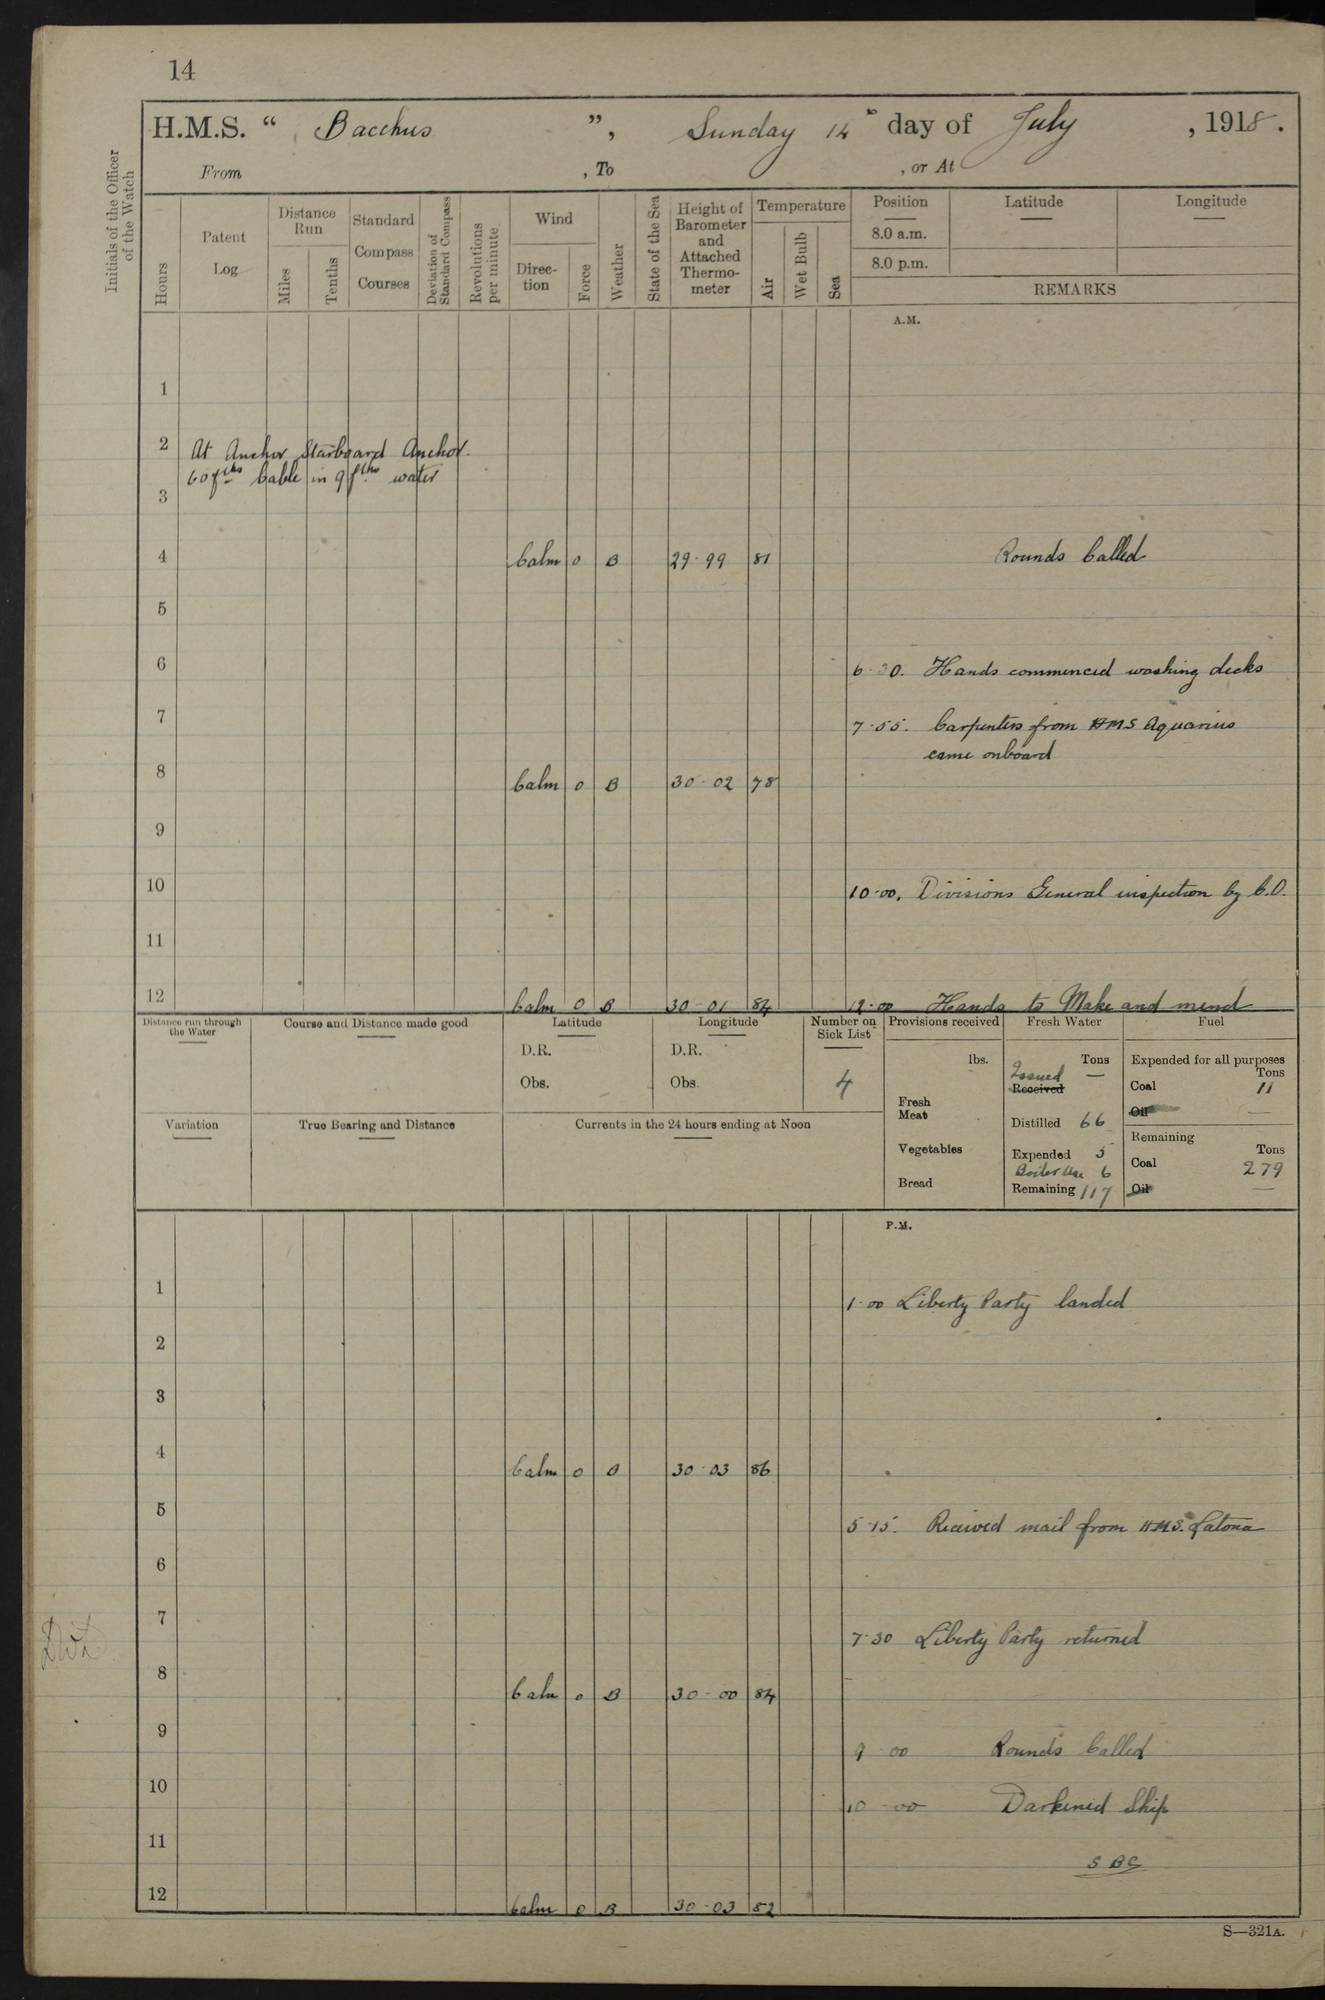 14
H.M.S. “ Bacchus ”, Sunday 14th day of July , 1918.
From , To , or At
Initials of the Officer of the Watch
Hours
Patent Log
Distance Run
Miles
Tenths
Standard Compass Courses
Deviation of Standard Compass
Revolutions per minute
Wind
Direction
Force
Weather
State of the Sea
Height of Barometer and Attached Thermometer
Temperature
Air
Wet Bulb
Sea
Position Latitude Longitude
8.0 a.m.
8.0 p.m.
REMARKS
A.M.
1
2 At Anchor Starboard Anchor.
60 fths Cable in 9 fths water
3
4 Calm 0 B 29·99 81 Rounds Called
5
6 6·30. Hands commenced washing decks
7 7·55. Carpenters from HMS Aquarius
came onboard
8 Calm 0 B 30·02 78
9
10 10·00. Divisions General inspection by C.O.
11
12 Calm 0 B 30·01 84 12·00 Hands to Make and mend
Distance run through the Water
Course and Distance made good
Latitude
D.R.
Obs.
Longitude
D.R.
Obs.
Number on Sick List
4
Provisions received
lbs.
Fresh Meat
Vegetables
Bread
Fresh Water
Tons
Issued —
Received
Distilled 66
Expended 5
Boiler Use 6
Remaining 117
Fuel
Expended for all purposes
Tons
Coal 11
Oil —
Remaining
Tons
Coal 279
Oil —
Variation
True Bearing and Distance
Currents in the 24 hours ending at Noon
P.M.
1 1·00 Liberty Party landed
2
3
4 Calm 0 B 30·03 86
5 5·15. Received mail from H.M.S. Latona
6
7 7·30 Liberty Party returned
8 Calm 0 B 30·00 84
9 9·00 Rounds Called
10 10·00 Darkened Ship
11 SBC
12 Calm 0 B 30·03 82
S—321A.